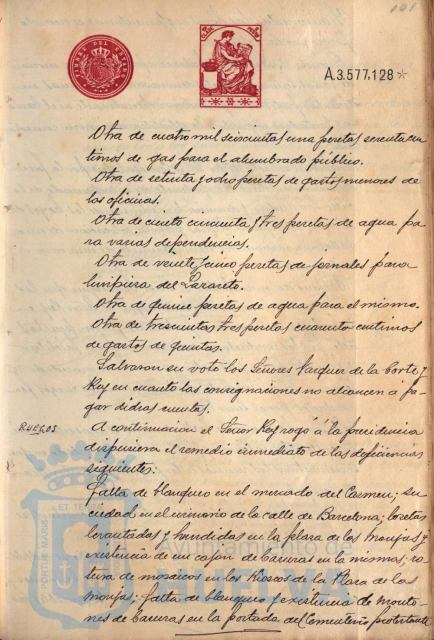 101
TIMBRE DEL ESTADO
A.3.577.128*
Otra de cuatro mil seiscientas una pesetas sesenta cen
timos de gas para el alumbrado público.
Otra de setenta y ocho pesetas de gastos menores de
las oficinas.
Otra de ciento cincuenta y tres pesetas de agua pa
ra varias dependencias.
Otra de veinte y cinco pesetas de jornales para
limpieza del Lazareto.
Otra de quince pesetas de agua para el mismo.
Otra de trescientas tres pesetas cuarenta centimos
de gastos de quintas.
Salvaron su voto los Señores Vazquez de la Corte y
Rey en cuanto las consignaciones no alcancen a pa
gar dichas cuentas.
RUEGOS
A continuacion el Señor Rey rogó á la presidencia
dispusiera el remedio inmediato de las deficiencias
siguientes:
Falta de blanqueo en el mercado del Carmen; su
ciedad en el urinario de la calle de Barcelona; losetas
levantadas y hundidas en la plaza de las Monjas y
existencia de un cajón de basuras en la misma; ro
tura de mosaicos en los Kioscos de la Plaza de las
Monjas; falta de blanqueo y existencia de monto
nes de basuras en la portada del Cementerio protestante
PORTUS MARIS ET TE